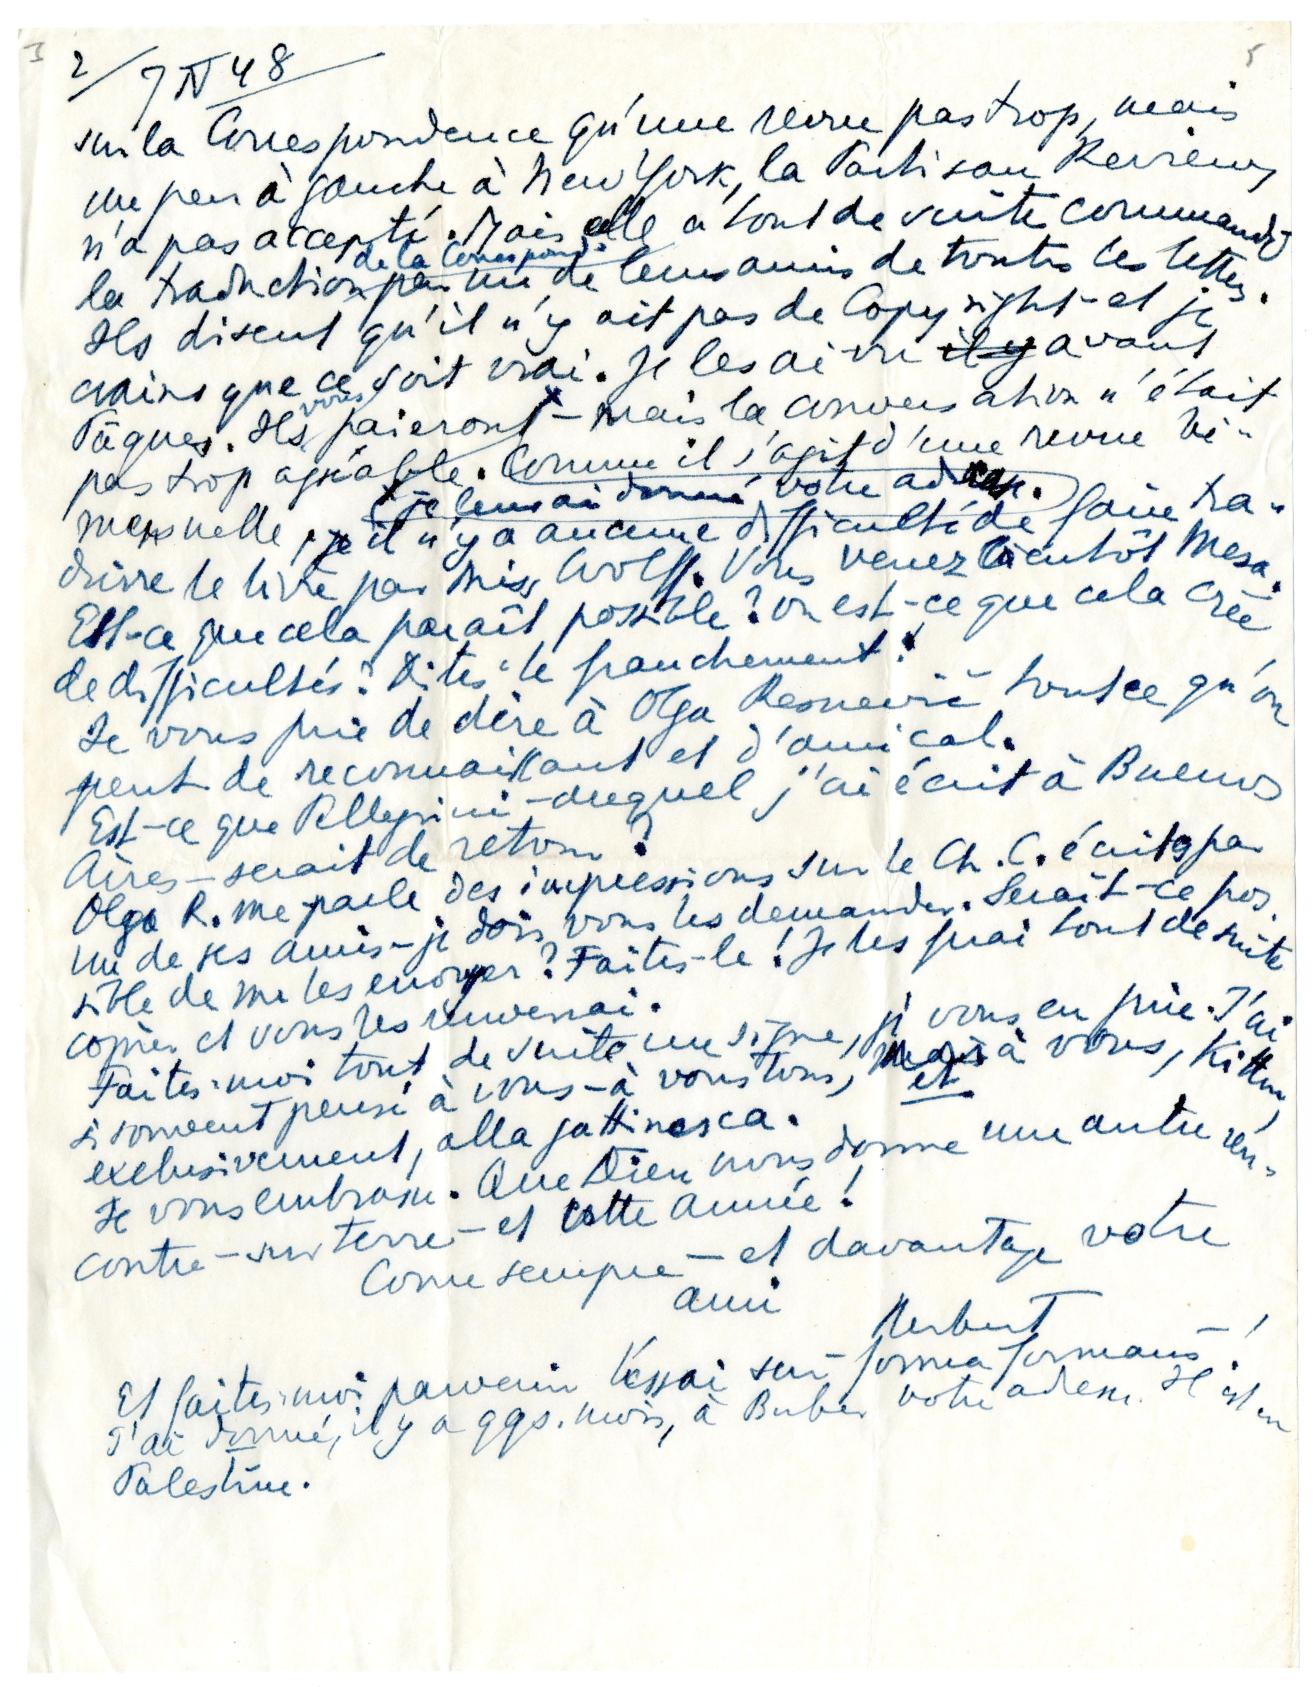 3
2/ 7 IV 48
5
sur la Correspondence qu'une revue pas trop, mais
un peu à gauche à New York, la Partisan Review,
n'a pas accepté. Mais elle a tout de suite commandé
de la Correspond.
la traduction par un de leurs amis de toutes les lettres.
Ils disent qu'il n'y ait pas de Copyright - et je
crains que ce soit vrai. Je les ai vu il y avant
Pâques. Ils vous paieront - mais la conversation n'était
pas trop agréable. Comme il s'agit d'une revue bi-
je leur ai donné votre adresse.
mensuelle, il n'y a aucune difficulté de faire tra-
duire le livre par Miss Wolff. Vous verrez bientôt Mesa.
Est-ce que cela paraît possible? Ou est-ce que cela crée
de difficultés? Dites-le franchement!
Je vous prie de dire à Olga Resnevič tout ce qu'on
peut de reconnaissant et d'amical.
Est-ce que Pellegrini - auquel j'ai écrit à Buenos
Aires - serait de retour?
Olga R. me parle des impressions sur le Ch. C. écrits par
un de ses amis - je dois vous les demander. Serait-ce pos-
sible de me les envoyer? Faites-le! Je les ferai tout de suite
copier et vous les renverrai.
Faites-moi tout de suite un signe, je vous en prie. J'ai
si souvent pensé à vous - à vous tous, et à vous, Kitten,
exclusivement, alla gattinesca.
Je vous embrasse. Que Dieu nous donne une autre ren-
contre - sur terre - et cette année!
Come sempre - et davantage votre
ami
Herbert
Et faites-moi parvenir l'essai sur forma formans!
J'ai donné, il y a qqs. mois, à Buber votre adresse. Il est en
Palestine.